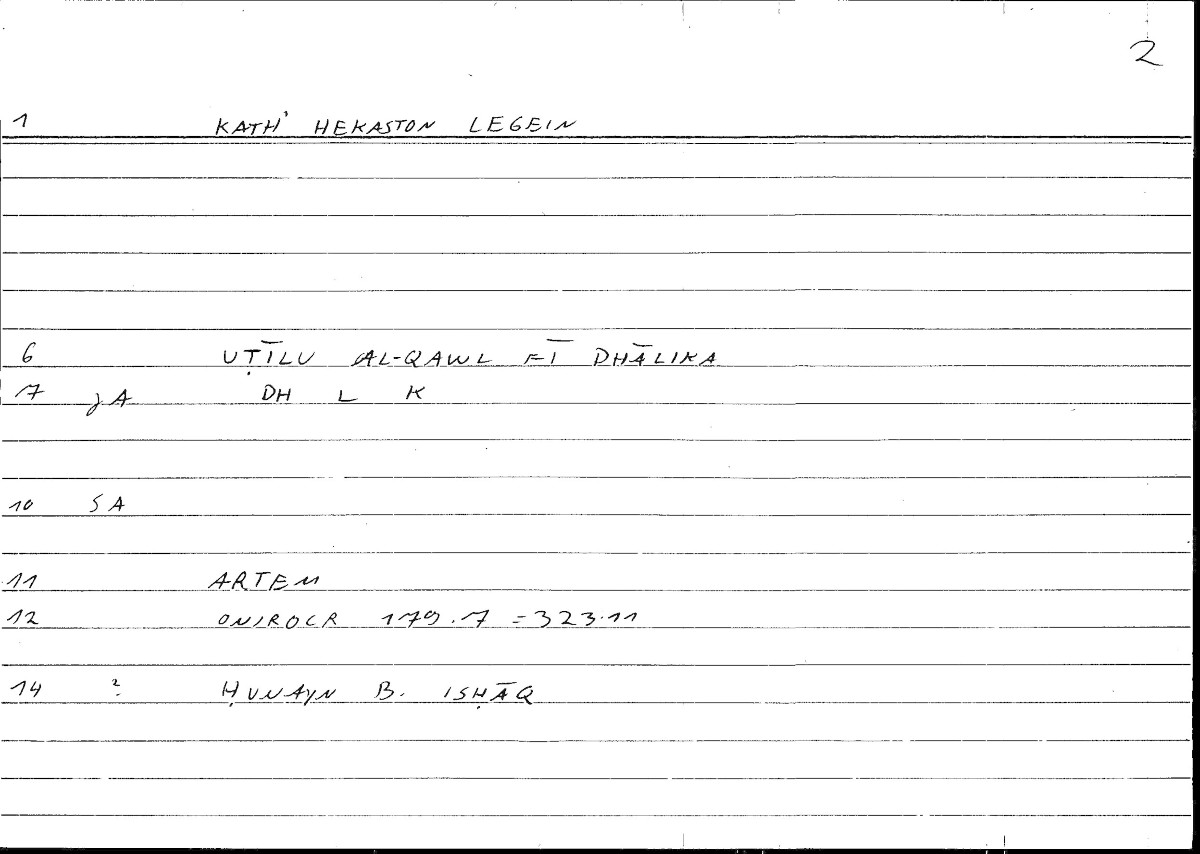 2
1 KATH' HEKASTON LEGEIN
6 UṬĪLU AL-QAWL FĪ DHĀLIKA
7 JA DH L K
10 SA
11 ARTEM
12 ONIROCR 179.7 = 323.11
14 ? ḤUNAYN B. ISḤĀQ